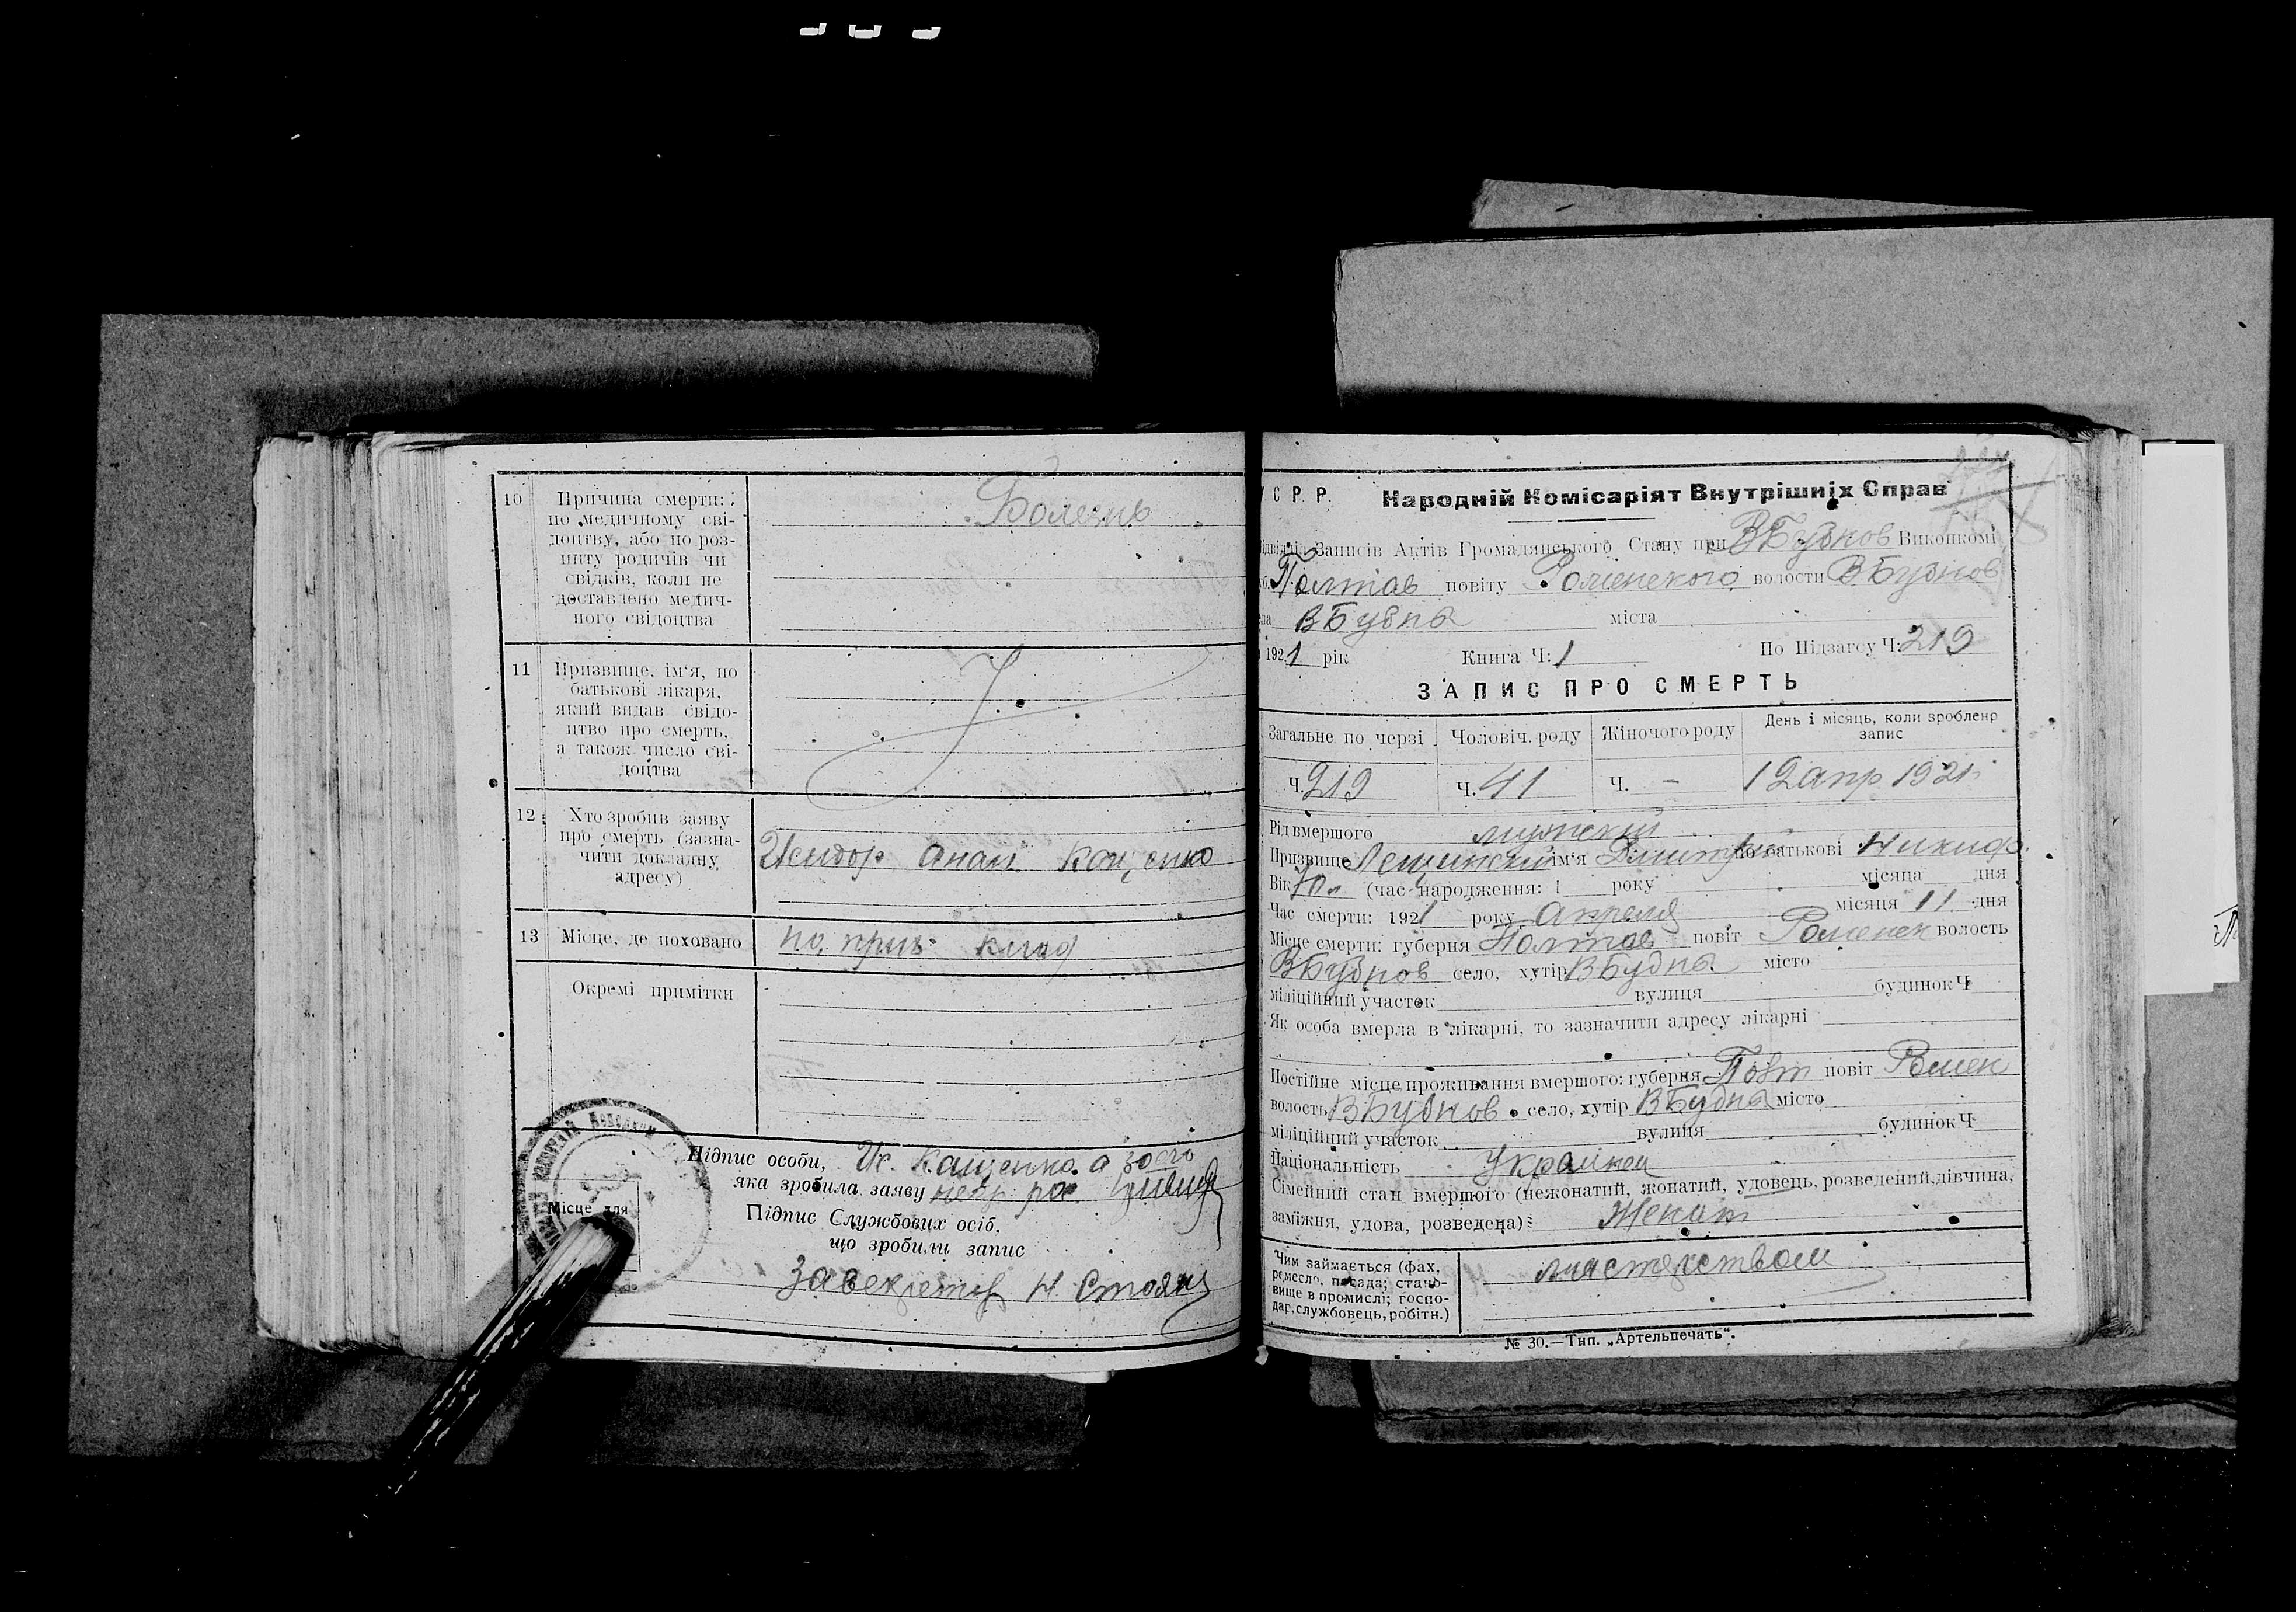 10 Причина смерти: Болезнь
по медичному сві-
доцтву, або по роз-
питу родичів чи
свідків, коли не
доставлено медич-
ного свідоцтва
11 Призвище, ім'я, по
батькові лікаря,
який видав свідо-
цтво про смерть,
а також число сві-
доцтва
12 Хто зробив заяву
про смерть (зазна-
чити докладну
адресу)
13 Місце, де поховано по прих клад
Окремі примітки
Підпис особи, Ис. Кащенко а за его
яка зробила заяву негр рос
Підпис Службових осіб,
що зробили запис
Місце для
У С Р. Р. Народній Комісаріят Внутрішніх Справ
Записів Актів Громадянського Стану при ВБубнов Виконкомі
Полтав повіту Роменского волости ВБубнов
ВБубна міста
1921 рік Книга Ч: 1 По Підзагсу Ч: 219
ЗАПИС ПРО СМЕРТЬ
Загальне по черзі Чоловіч. роду Жіночого роду День і місяць, коли зроблено
запис
Ч. 219 Ч. 41 Ч. — 12 апр 1921
Рід вмершого мужский
Призвище Лещинский ім'я Дмитрий по батькові Никиф.
Вік 70 л (час народження: 1 року місяца дня
Час смерти: 1921 року Апреля місяця 11 дня
Місце смерти: губерня Полтав повіт Роменск волость
ВБубнов село, хутір ВБубна місто
міліційний участок вулиця будинок Ч
Як особа вмерла в лікарні, то зазначити адресу лікарні
Постійне місце проживання вмершого: губерня Полт повіт Ромен
волость ВБубнов село, хутір ВБубна місто
міліційний участок вулиця будинок Ч
Національність Украинец
Сімейний стан вмершого (нежонатий, жонатий, удовець, розведений, дівчина,
заміжня, удова, розведена): Женат
Чим займається (фах,
ремесло, посада; стано-
вище в промислі; госпо-
дар, службовець, робітн.)
№ 30.—Тип. „Артельпечать“.